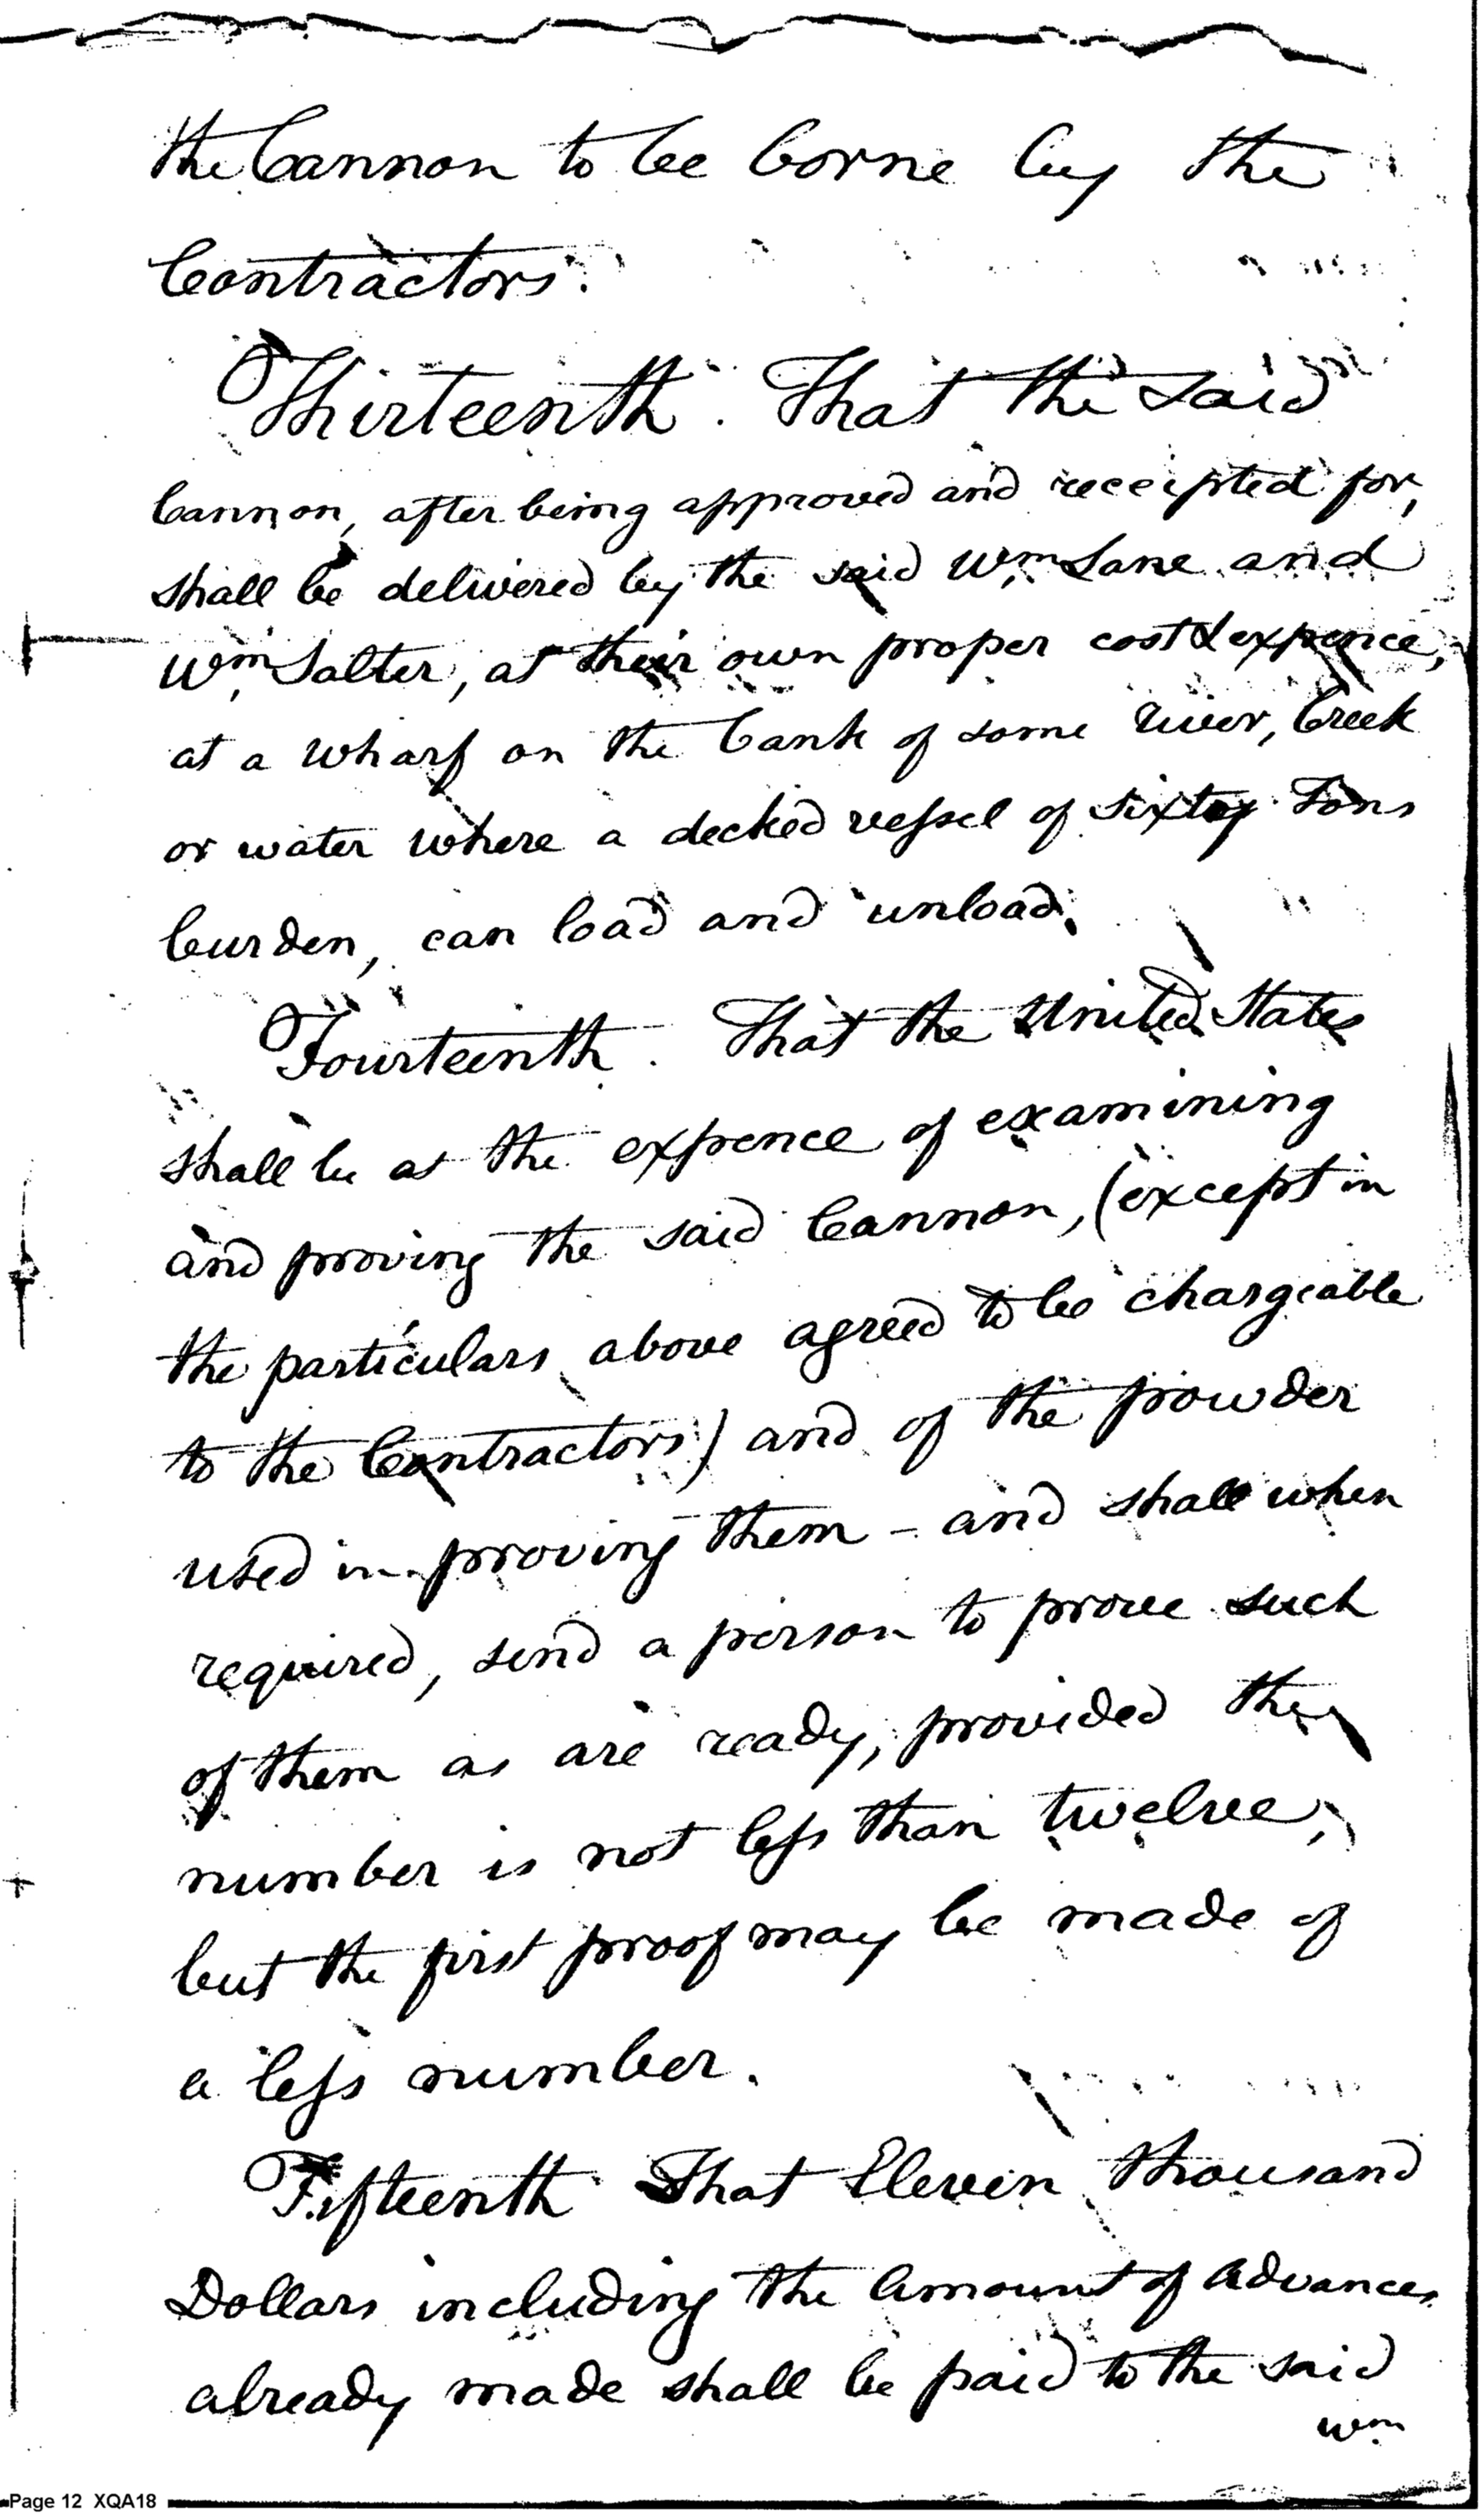 the Cannon to be borne by the
Contractors.
Thirteenth. That the said
Cannon, after being approved and receipted for,
shall be delivered by the said Wm. Lane and
Wm. Salter, at their own proper cost & expence,
at a wharf on the bank of some river, Creek
or water where a decked vessel of sixty Tons
burden, can load and unload.
Fourteenth. That the United States
shall be at the expence of examining
and proving the said Cannon, (except in
the particulars above agreed to be chargeable
to the Contractors) and of the powder
used in proving them - and shall when
required, send a person to prove such
of them as are ready, provided the
number is not less than twelve,
but the first proof may be made of
a less number.
Fifteenth That Eleven thousand
Dollars including the Amount of Advances
already made shall be paid to the said
Wm
Page 12 XQA18